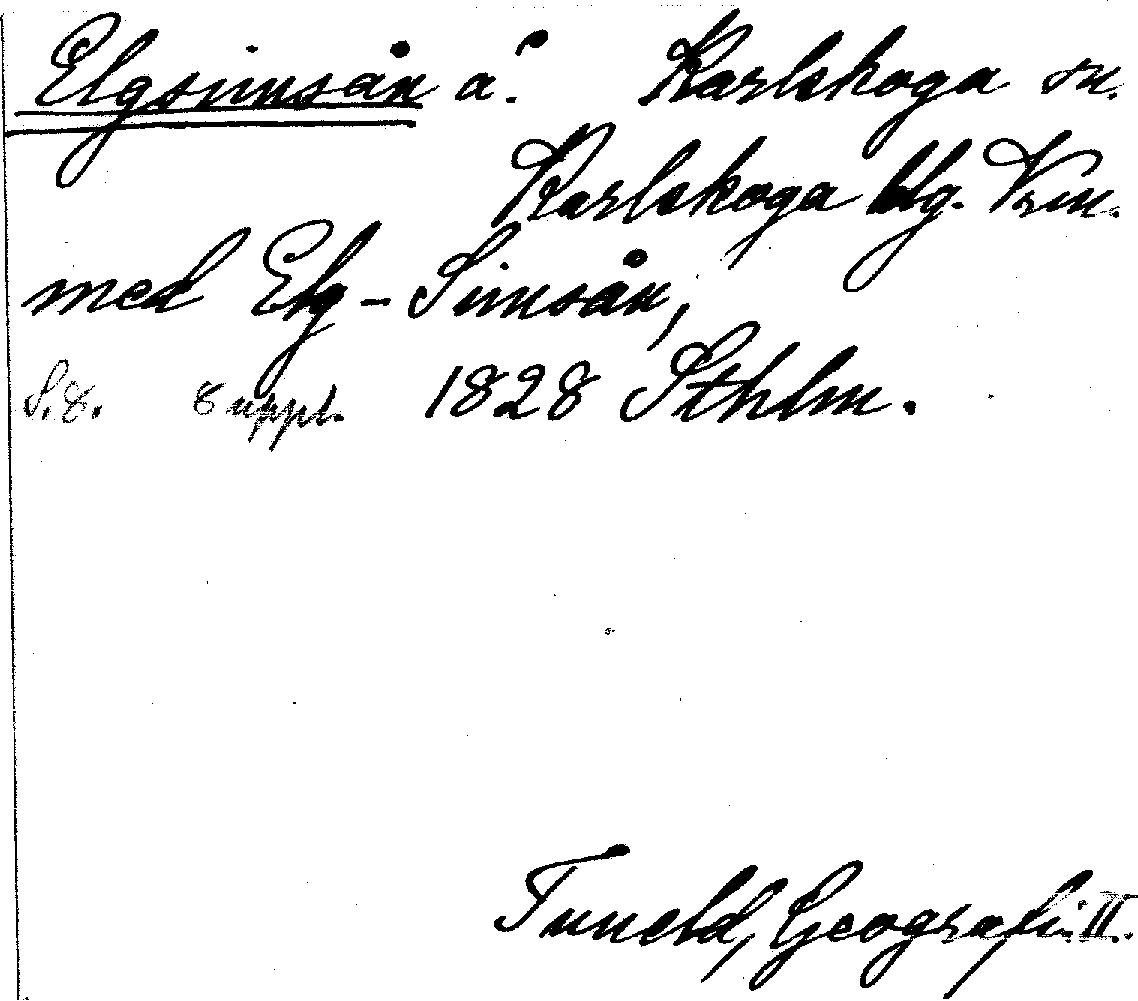 Elgsimsån å. Karlskoga sn.
Karlskoga blg. Vrm.
med Elg-Simsån,
S. 8. 8 uppl. 1828 Sthlm.
Tuneld, Geografi. II.